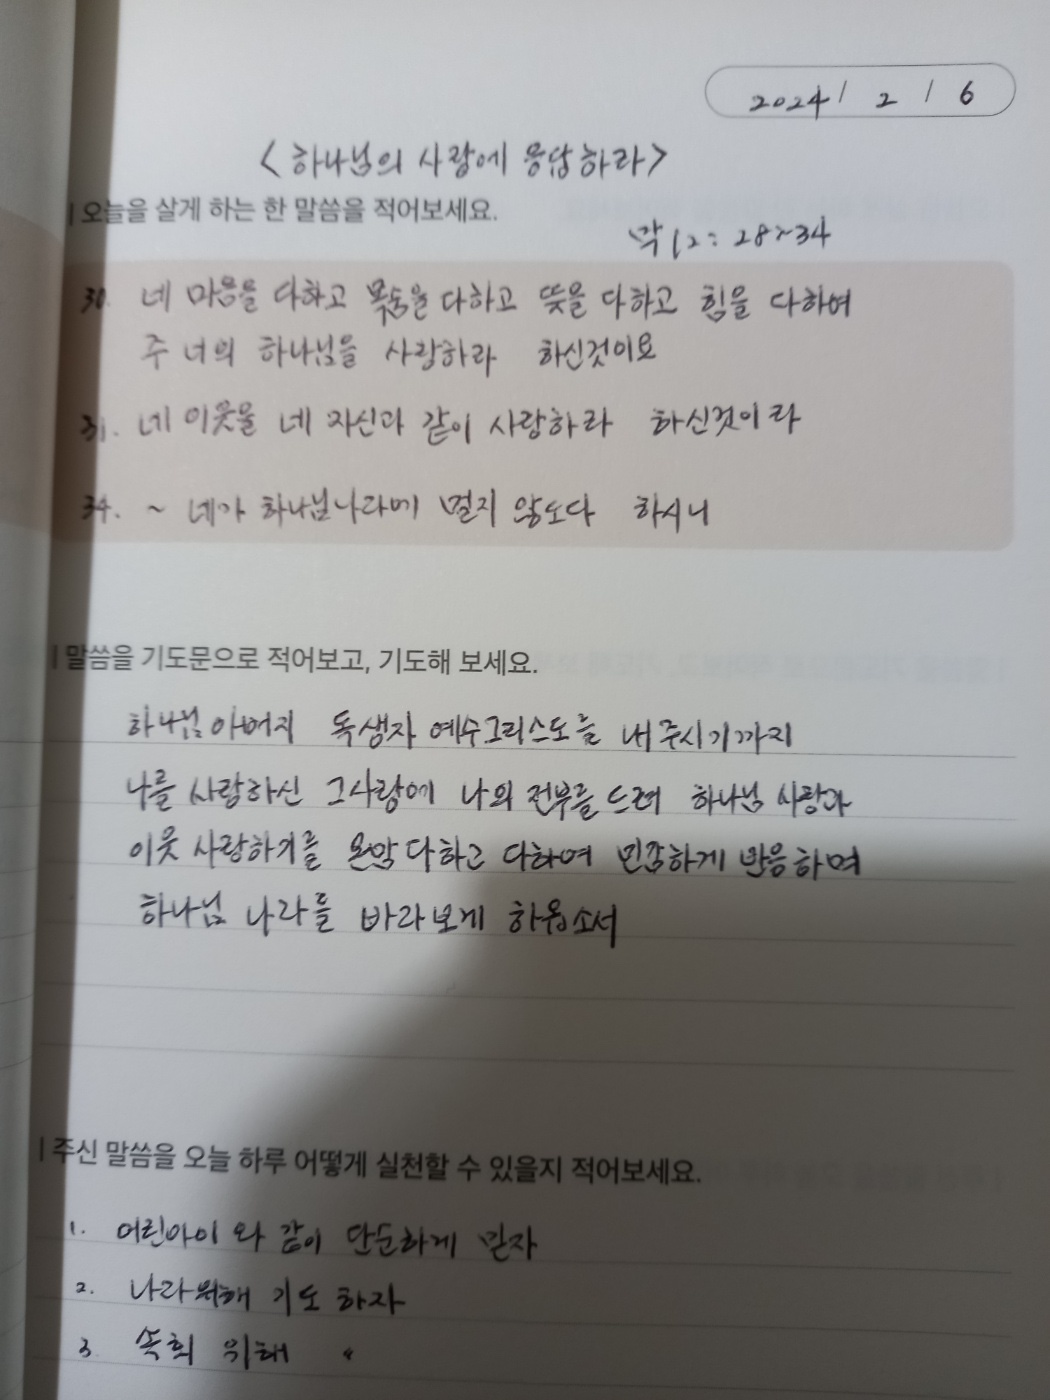 2024 / 2 / 6
<하나님의 사랑에 응답하라>
| 오늘을 살게 하는 한 말씀을 적어보세요.
막 12: 28~34
30. 네 마음을 다하고 목숨을 다하고 뜻을 다하고 힘을 다하여
주 너의 하나님을 사랑하라 하신것이요
31. 네 이웃을 네 자신과 같이 사랑하라 하신것이라
34. ~ 네가 하나님나라에 멀지 않도다 하시니
| 말씀을 기도문으로 적어보고, 기도해 보세요.
하나님 아버지 독생자 예수그리스도를 내주시기까지
나를 사랑하신 그사랑에 나의 전부를 드려 하나님 사랑과
이웃 사랑하기를 온맘 다하고 다하여 민감하게 반응하며
하나님 나라를 바라보게 하옵소서
| 주신 말씀을 오늘 하루 어떻게 실천할 수 있을지 적어보세요.
1. 어린아이와 같이 단순하게 믿자
2. 나라위해 기도하자
3. 속회 위해 〃